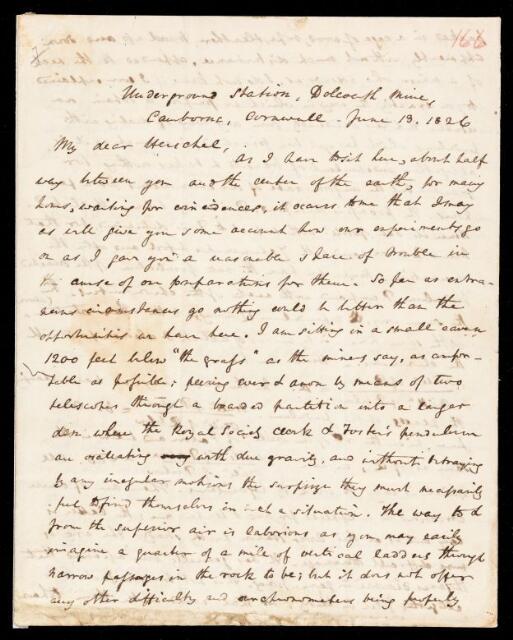 166
Underground Station, Dolcoath Mine,
Camborne, Cornwall. June 13. 1826
My dear Herschel,
as I have to sit here, about half
way between you and the center of the earth, for many
hours, waiting for coincidences, it occurs to me that I may
as well give you some account how our experiments go
on as I gave you a reasonable share of trouble in
the cause of our preparations for them. So far as extra-
neous circumstances go nothing could be better than the
opportunities we have here. I am sitting in a small cavern
1200 feet below "the grass" as the miners say, as comfor-
table as possible; peering ever & anon by means of two
telescopes through a boarded partition into a larger
den where the Royal Society clock & Foster's pendulum
are oscillating with due gravity, and without betraying
by any irregular motions the surprize they must necessarily
feel to find themselves in such a situation. The way to &
from the superior air is laborious as you may easily
imagine a quarter of a mile of vertical ladders through
narrow passages in the rock to be; but it does not offer
any other difficulty and our chronometers being properly